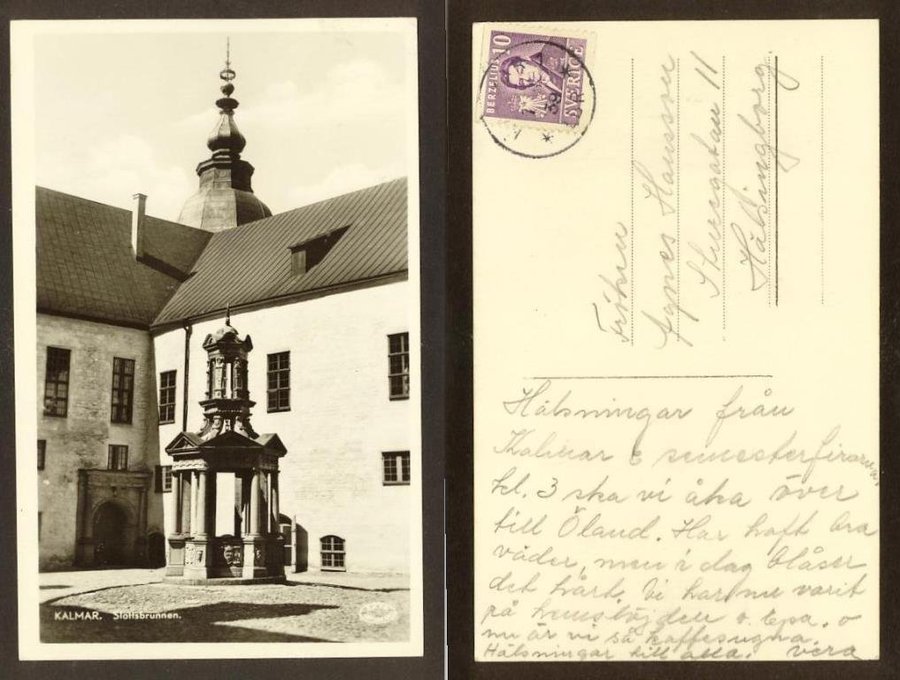 KALMAR. Slottsbrunnen.
BERZELIUS 10
SVERIGE
39
Fröken
Agnes Hansson
Sturegatan 11
Hälsingborg
Hälsningar från
Kalmar & semesterfirarna.
kl. 3 ska vi åka över
till Öland. Har haft bra
väder, men i dag blåser
det hårt. Vi har nu varit
på hemslöjden o. Epa. o
nu är vi så kaffesugna.
Hälsningar till alla. Vera